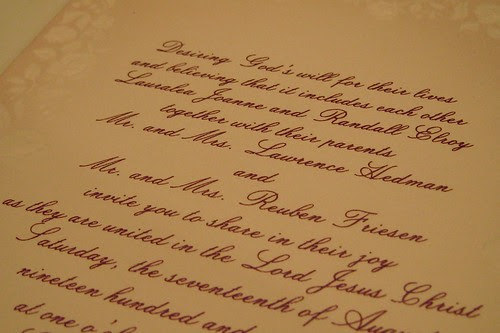 Desiring God's will for their lives
and believing that it includes each other
Lauralea Joanne and Randall Elroy
together with their parents
Mr. and Mrs. Lawrence Hedman
and
Mr. and Mrs. Reuben Friesen
invite you to share in their joy
as they are united in the Lord Jesus Christ
Saturday, the seventeenth of
nineteen hundred and
at one